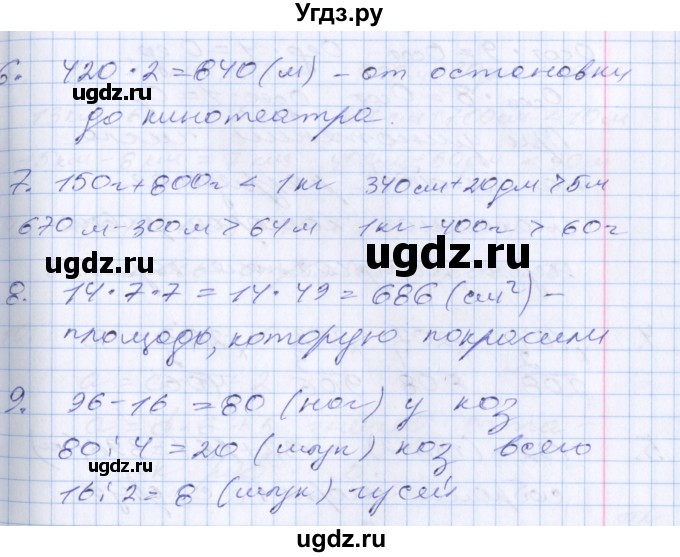 Угдз.ру
6. 420 · 2 = 840 (м) – от остановки
ugdz.ru
до кинотеатра.
7. 150г + 800г < 1кг 340см + 20дм > 5м
670м – 300м > 64м 1кг – 400г > 60г
ugdz.ru ugdz.ru
8. 14 · 7 · 7 = 14 · 49 = 686 (см²) –
площадь, которую покрасили
9. 96 – 16 = 80 (ног) у коз
80 : 4 = 20 (штук) коз всего
ugdz.ru
16 : 2 = 8 (штук) гусей
ugdz.ru
Угдз.ру